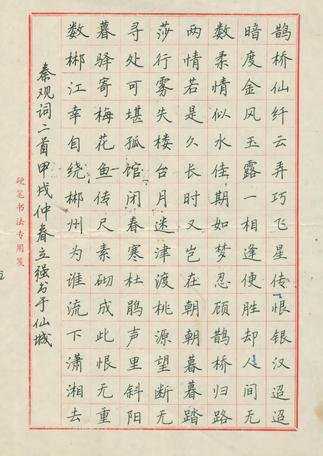 鹊桥仙纤云弄巧飞星传恨银汉迢迢
暗度金风玉露一相逢便胜却人间无
数柔情似水佳期如梦忍顾鹊桥归路
两情若是久长时又岂在朝朝暮暮踏
莎行雾失楼台月迷津渡桃源望断无
寻处可堪孤馆闭春寒杜鹃声里斜阳
暮驿寄梅花鱼传尺素砌成此恨无重
数郴江幸自绕郴州为谁流下潇湘去
秦观词二首甲戌仲春立强书于仙城
硬笔书法专用笺